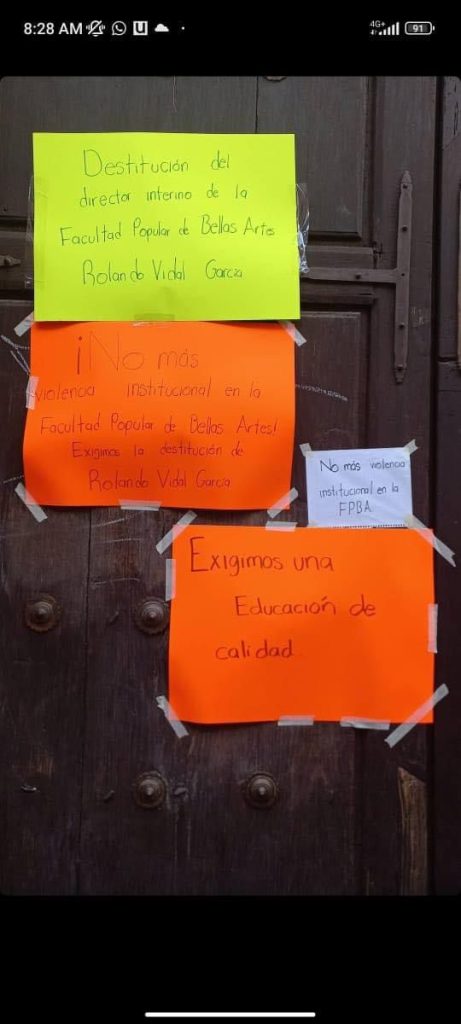 8:28 AM
4G+
91
Destitución del
director interino de la
Facultad Popular de Bellas Artes
Rolando Vidal García
¡No más
violencia institucional en la
Facultad Popular de Bellas Artes!
Exigimos la destitución de
Rolando Vidal García
No más violencia
institucional en la
FPBA
Exigimos una
Educación de
calidad